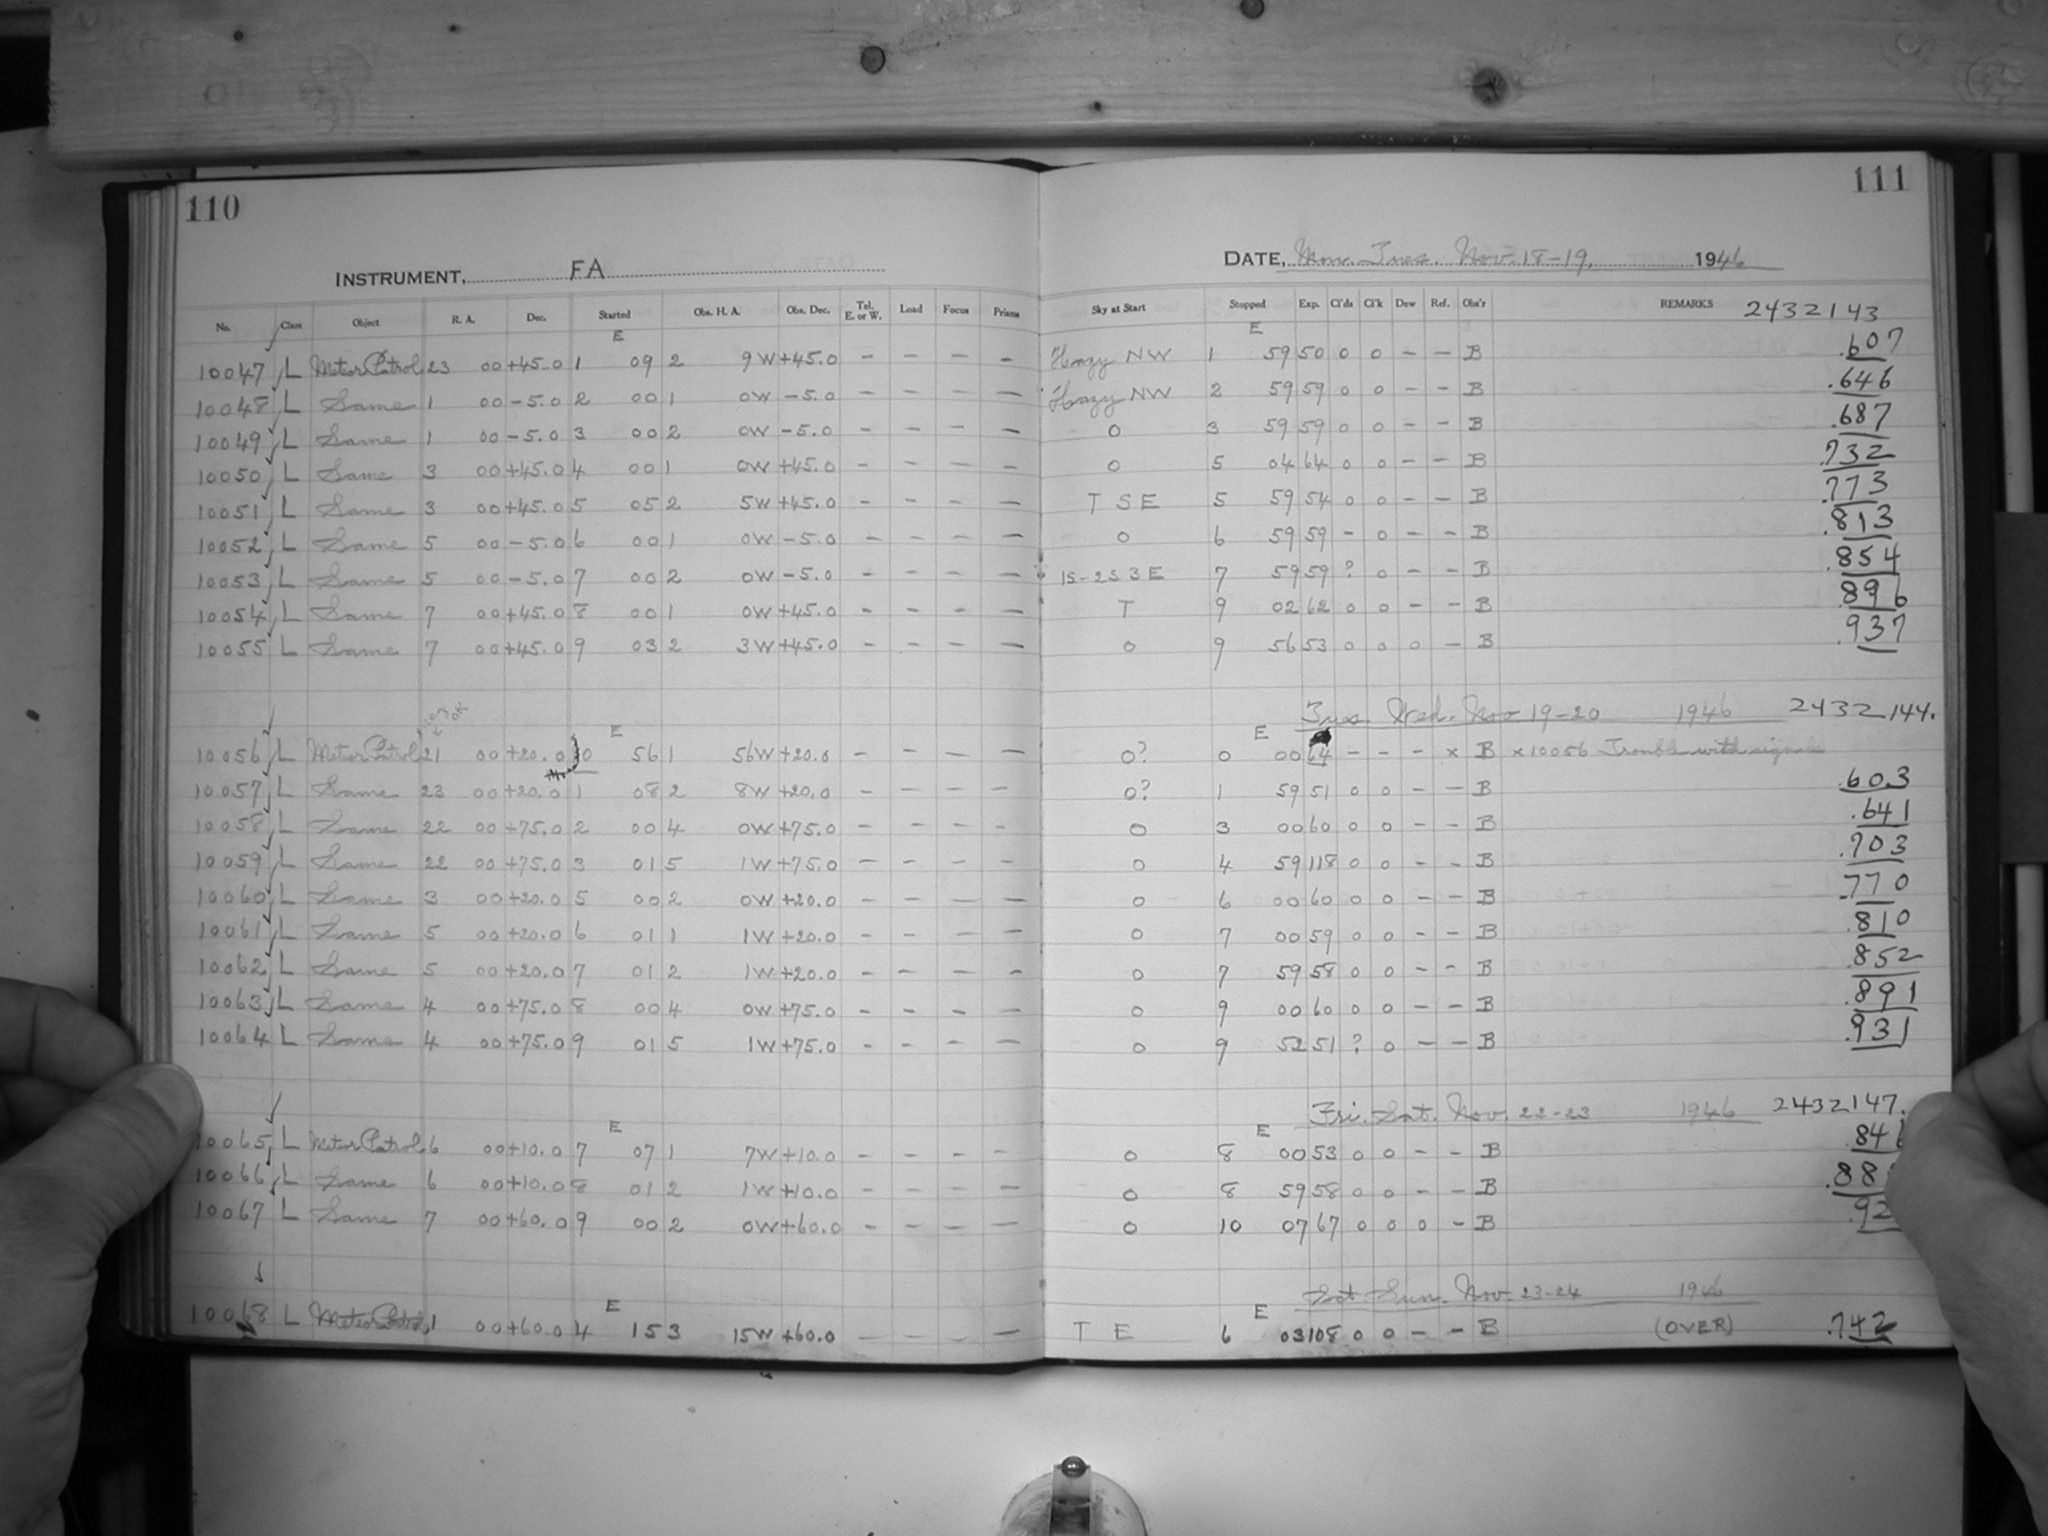 110
111
INSTRUMENT, FA
DATE, Mon. Tues. Nov. 18-19. 1946
No. Class Object R. A. Dec. Started Obs. H. A. Obs. Dec. Tel. E. or W. Load Focus Prisms Sky at Start Stopped Exp. Cl'ds Cl'k Dew Ref. Obs'r REMARKS 2432143
E E
10047 L Meteor Patrol 23 00 +45.0 1 09 2 9W +45.0 - - - - Hazy NW 1 59 50 0 0 - - B .607
10048 L Same 1 00 -5.0 2 00 1 0W -5.0 - - - - Hazy NW 2 59 59 0 0 - - B .646
10049 L Same 1 00 -5.0 3 00 2 0W -5.0 - - - - 0 3 59 59 0 0 - - B .687
10050 L Same 3 00 +45.0 4 00 1 0W +45.0 - - - - 0 5 04 64 0 0 - - B .732
10051 L Same 3 00 +45.0 5 05 2 5W +45.0 - - - - T S E 5 59 54 0 0 - - B .773
10052 L Same 5 00 -5.0 6 00 1 0W -5.0 - - - - 0 6 59 59 - 0 - - B .813
10053 L Same 5 00 -5.0 7 00 2 0W -5.0 - - - - 1S-2S 3E 7 59 59 ? 0 - - B .854
10054 L Same 7 00 +45.0 8 00 1 0W +45.0 - - - - T 9 02 62 0 0 - - B .896
10055 L Same 7 00 +45.0 9 03 2 3W +45.0 - - - - 0 9 56 53 0 0 0 - B .937
OK
Tues. Wed. Nov 19-20 1946 2432144.
E E
10056 L Meteor Patrol 21 00 +20.0 0 56 1 56W +20.0 - - - - 0? 0 00 64 - - - x B x10056 Trouble with signals
10057 L Same 23 00 +20.0 1 08 2 8W +20.0 - - - - 0? 1 59 51 0 0 - - B .603
10058 L Same 22 00 +75.0 2 00 4 0W +75.0 - - - - 0 3 00 60 0 0 - - B .641
10059 L Same 22 00 +75.0 3 01 5 1W +75.0 - - - - 0 4 59 118 0 0 - - B .703
10060 L Same 3 00 +20.0 5 00 2 0W +20.0 - - - - 0 6 00 60 0 0 - - B .770
10061 L Same 5 00 +20.0 6 01 1 1W +20.0 - - - - 0 7 00 59 0 0 - - B .810
10062 L Same 5 00 +20.0 7 01 2 1W +20.0 - - - - 0 7 59 58 0 0 - - B .852
10063 L Same 4 00 +75.0 8 00 4 0W +75.0 - - - - 0 9 00 60 0 0 - - B .891
10064 L Same 4 00 +75.0 9 01 5 1W +75.0 - - - - 0 9 52 51 ? 0 - - B .931
Fri. Sat. Nov. 22-23 1946 2432147.
E E
10065 L Meteor Patrol 6 00 +10.0 7 07 1 7W +10.0 - - - - 0 8 00 53 0 0 - - B .846
10066 L Same 6 00 +10.0 8 01 2 1W +10.0 - - - - 0 8 59 58 0 0 - - B .88
10067 L Same 7 00 +60.0 9 00 2 0W +60.0 - - - - 0 10 07 67 0 0 0 - B .92
Sat. Sun. Nov. 23-24 1946
E E
10068 L Meteor Patrol 1 00 +60.0 4 15 3 15W +60.0 - - - - T E 6 03 108 0 0 - - B (OVER) .742